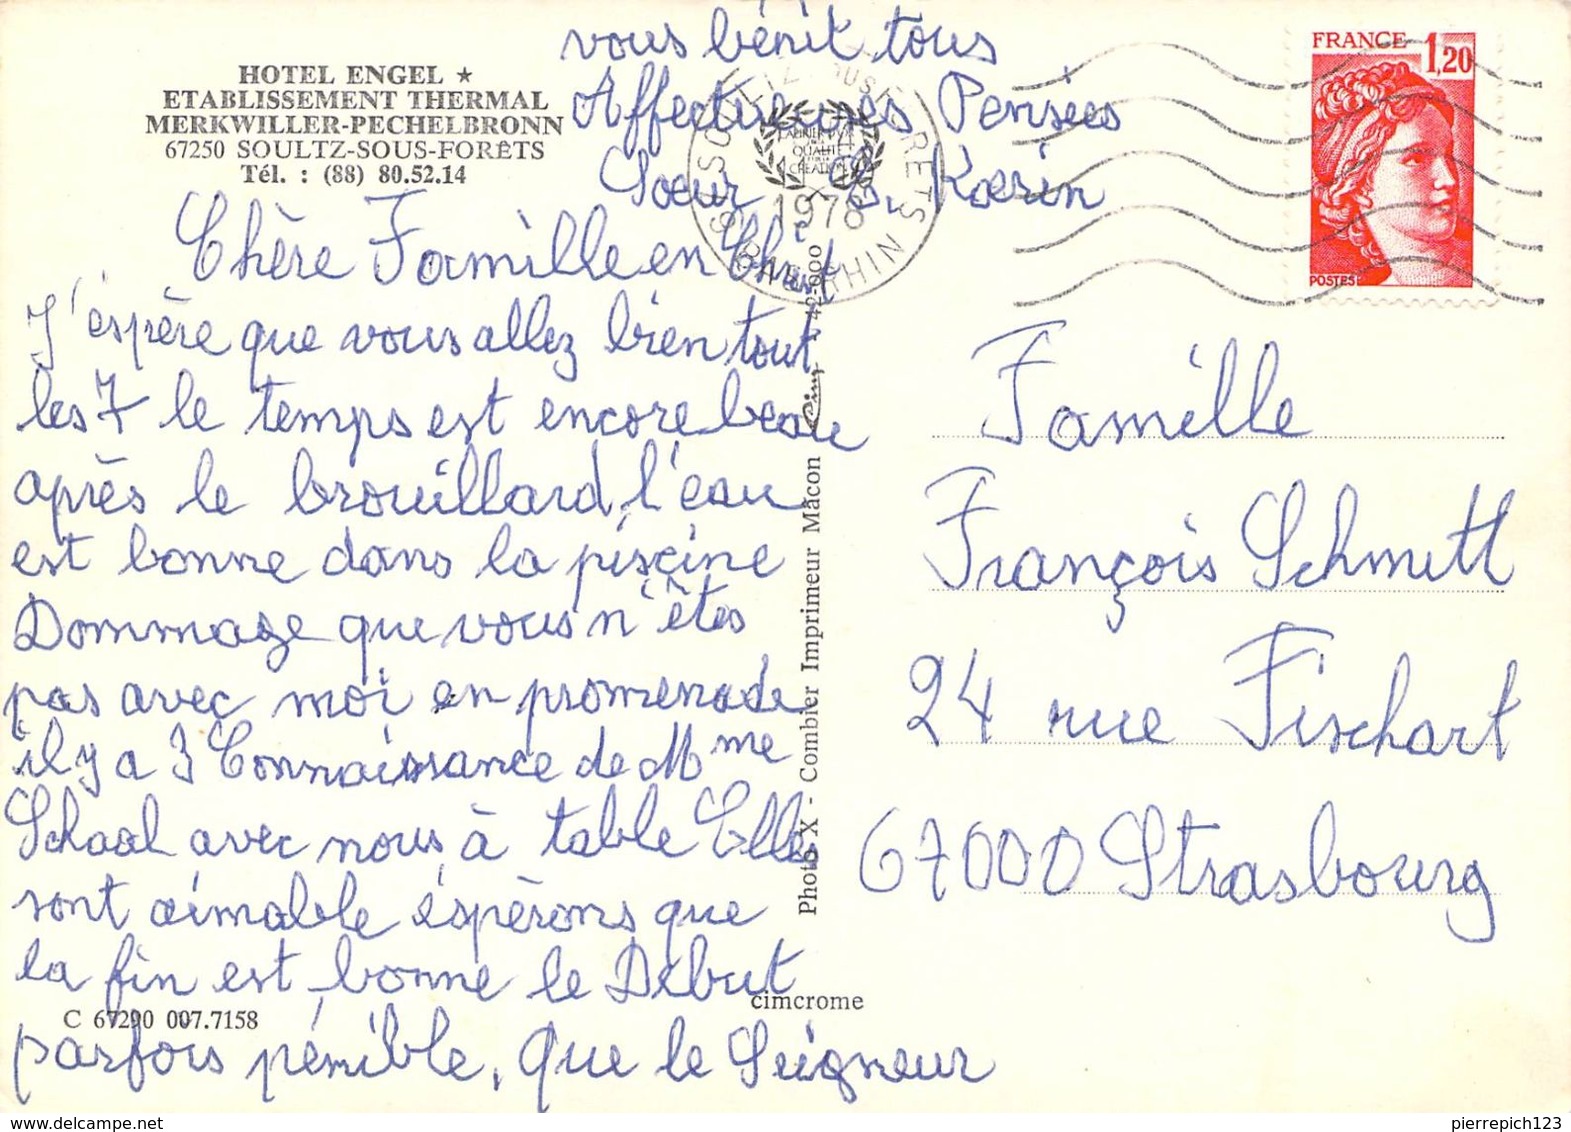 HOTEL ENGEL ★
ETABLISSEMENT THERMAL
MERKWILLER-PECHELBRONN
67250 SOULTZ-SOUS-FORÊTS
Tél. : (88) 80.52.14
Chère Famille en Christ
J'éspère que vous allez bien tout
les 7 le temps est encore beau
après le brouillard, l'eau
est bonne dans la piscine
Dommage que vous n'êtes
pas avec moi en promenade
il y a 3 Connaissance de Mme
Schaal avec nous à table Elles
sont aimable éspérons que
la fin est bonne le Debut
parfois pénible. Que le Seigneur
vous bénit tous
Affectueuses Pensées
Soeur Karin
C 67290 007.7158
cimcrome
Photo X - Combier Imprimeur Mâcon
42-000
SOULTZ SOUS FORETS
BAS RHIN
1978
FRANCE 1,20
POSTES
Famille
François Schmitt
24 rue Fischart
67000 Strasbourg
pierrepich123